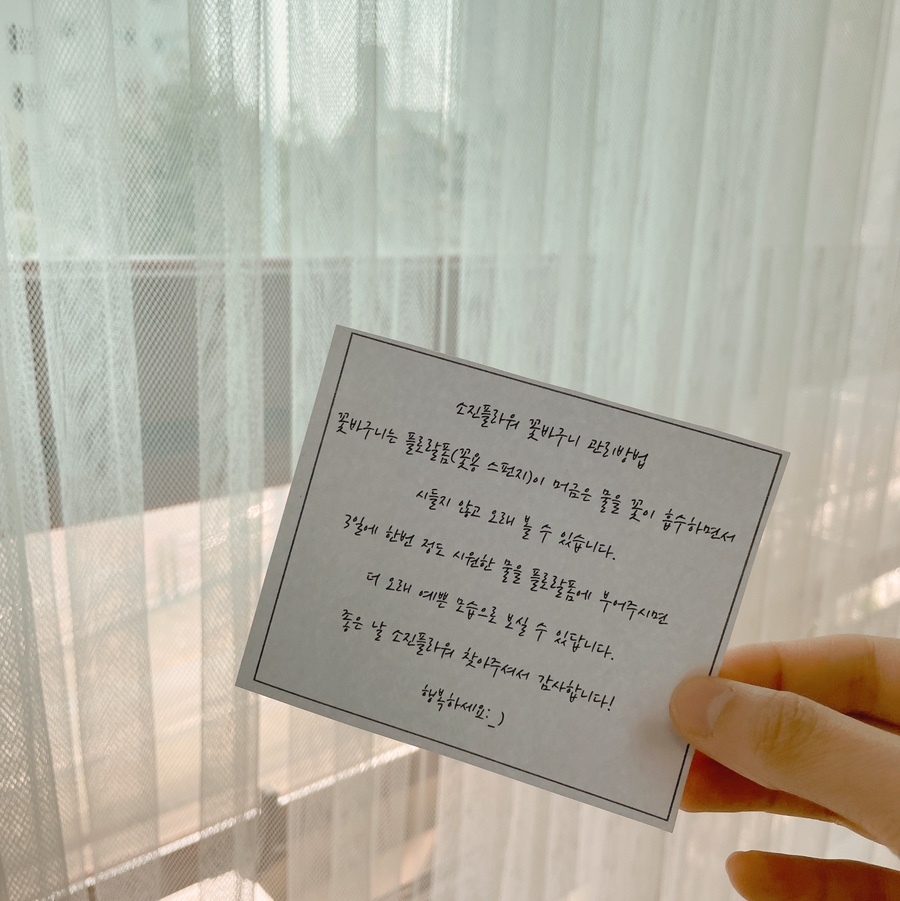 소진플라워 꽃바구니 관리방법
꽃바구니는 플로랄폼(꽃용 스펀지)이 머금은 물을 꽃이 흡수하면서
시들지 않고 오래 볼 수 있습니다.
3일에 한번 정도 시원한 물을 플로랄폼에 부어주시면
더 오래 예쁜 모습으로 보실 수 있답니다.
좋은 날 소진플라워 찾아주셔서 감사합니다!
행복하세요:_)